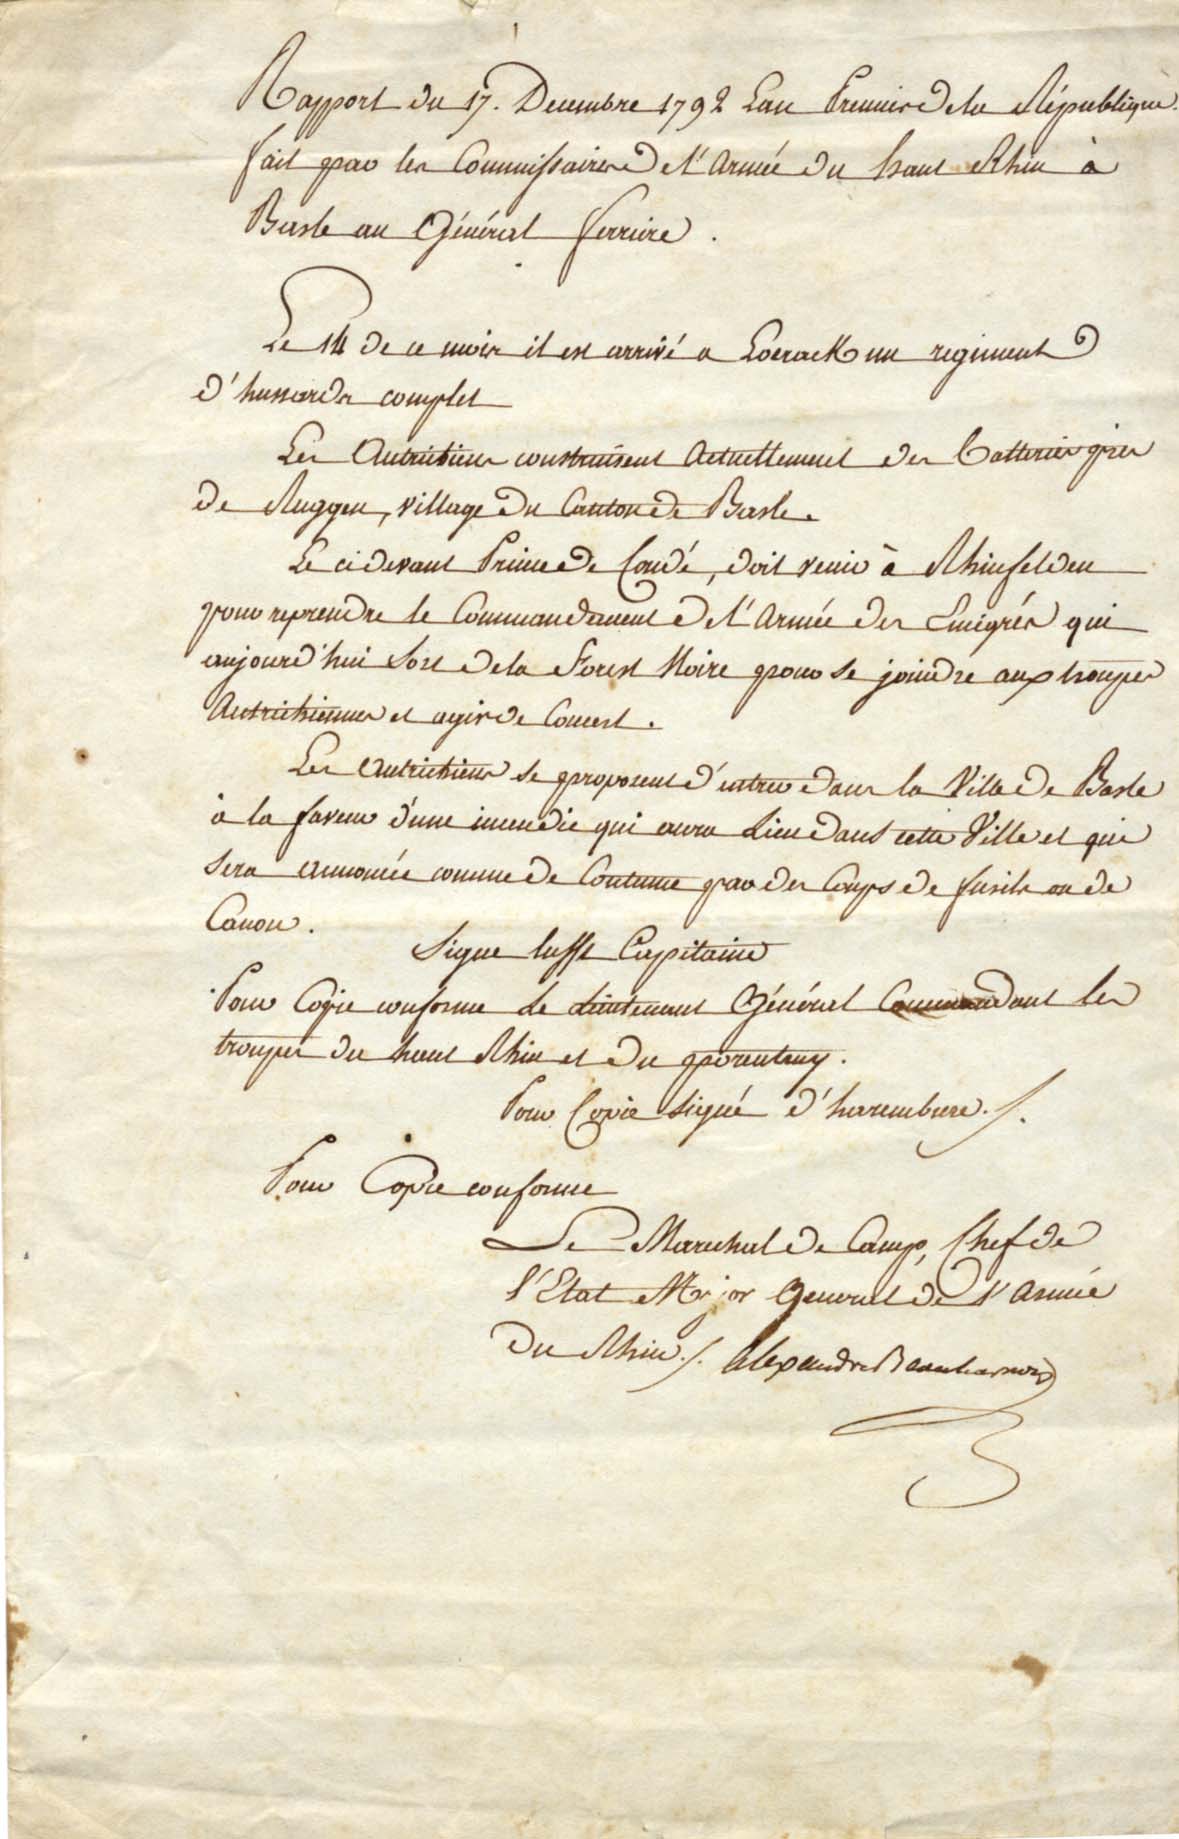 Rapport du 17. Decembre 1792 L'an Premier de la République
fait par les Commissaires de l'Armée du haut Rhin à
Basle au Général ferriere.
Le 14 de ce mois il est arrivé a Loerack un regiment
d'hussards complet
Les Autrichiens construisent Actuellement des Batteries près
de Ruggen, village du Canton de Basle.
Le ci devant Prince de Condé, doit venir à Rhinfelden
pour reprendre le Commandement de l'Armée des Emigrés qui
aujourd'hui sort de la Forest Noire pour se joindre aux troupes
Autrichiennes et agir de Concert.
Les Autrichiens se proposent d'entrer dans la Ville de Basle
à la faveur d'une incendie qui aura Lieu dans cette Ville et qui
sera annoncée comme de Coutume par des Coups de fusils ou de
Canon.
Signe Capitaine
Pour Copie conforme Le Lieutenant Général Commandant les
troupes du haut Rhin et du porentruy.
Pour Copie Signé d'harembure ./.
Pour Copie conforme
Le Marechal de Camp, Chef de
l'Etat Major General de l'Armée
Du Rhin ./. Alexandre Beauharnois